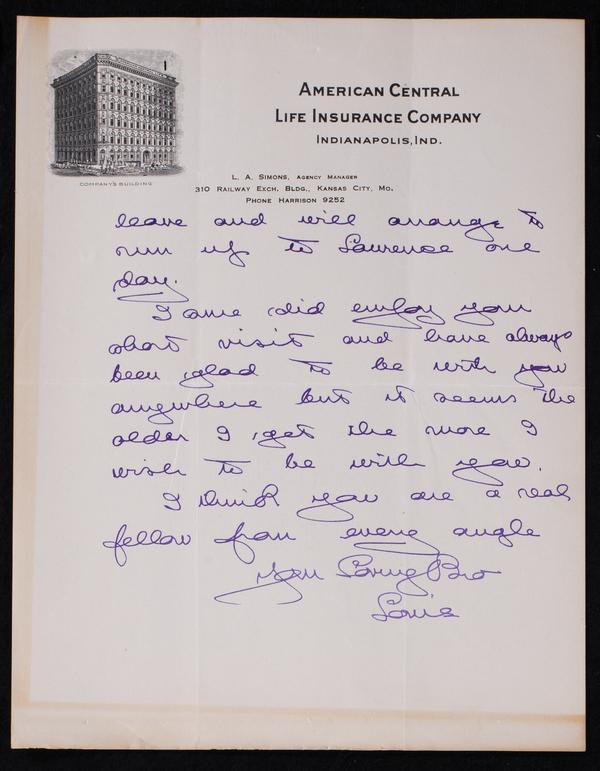 AMERICAN CENTRAL
LIFE INSURANCE COMPANY
INDIANAPOLIS, IND.
COMPANY'S BUILDING
L. A. SIMONS, AGENCY MANAGER
310 RAILWAY EXCH. BLDG., KANSAS CITY, MO.
PHONE HARRISON 9252
leave and will arrange to
run up to Lawrence one
day.
I did enjoy your
short visit and have always
been glad to be with you
anywhere but it seems the
older I get the more I
wish to be with you.
I think you are a real
fellow from every angle
Your Loving Bro
Louis